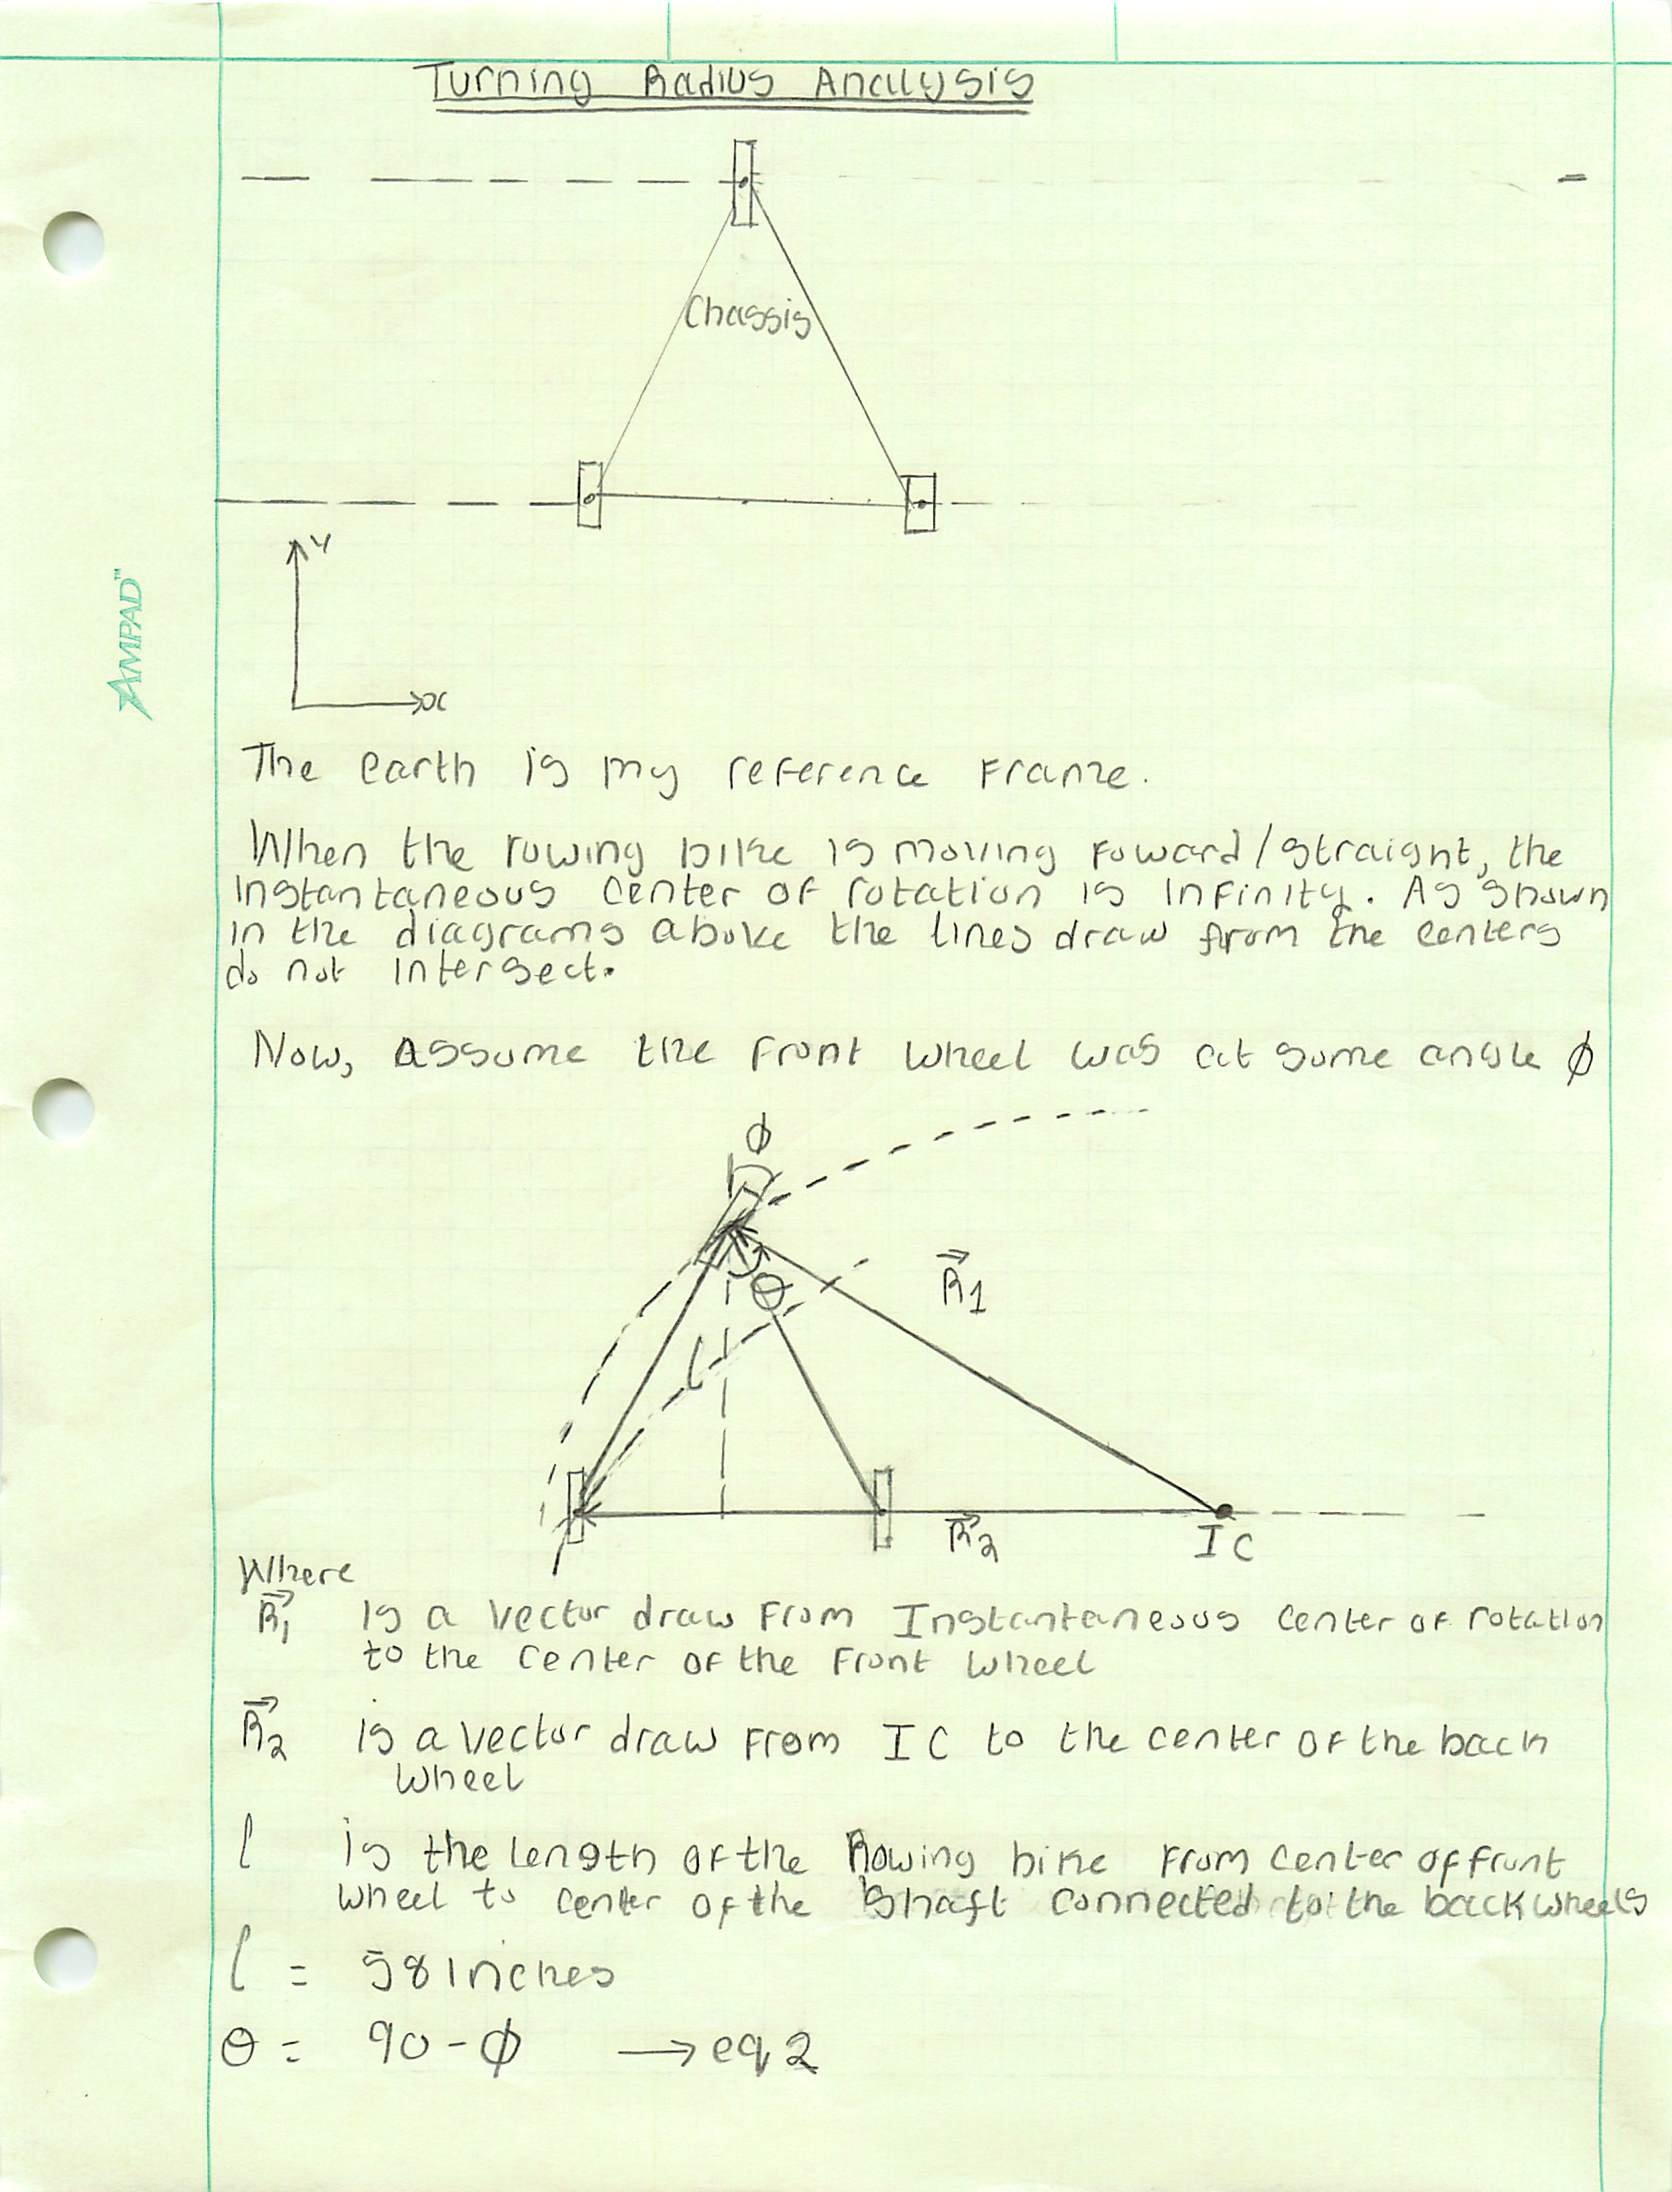 Turning Radius Analysis
Chassis
Y
x
AMPAD™
The earth is my reference frame.
When the rowing bike is moving foward/straight, the
instantaneous center of rotation is infinity. As shown
in the diagrams above the lines draw from the centers
do not intersect.
Now, assume the front wheel was at some angle ϕ
ϕ
R⃗1
θ
l
R⃗2
IC
Where
R⃗1 is a vector draw from Instantaneous center of rotation
to the center of the front wheel
R⃗2 is a vector draw from IC to the center of the back
wheel
l is the length of the Rowing bike from center of front
wheel to center of the shaft connected to the back wheels
l = 58 inches
θ = 90 - ϕ → eq 2